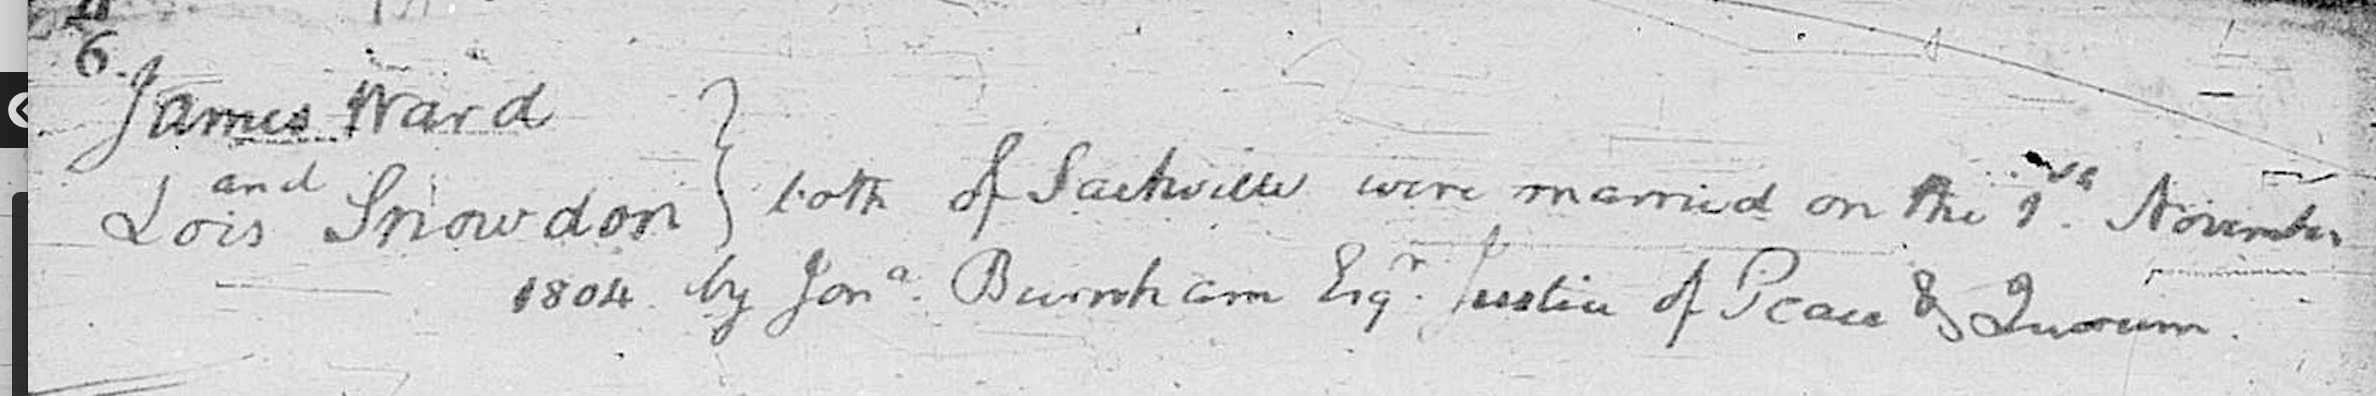 6.
James Ward
and
Lois Snowdon } both of Sackville were married on the 1st November
1804 by Jon a. Burnham Esqr. Justice of Peace & Quorum.